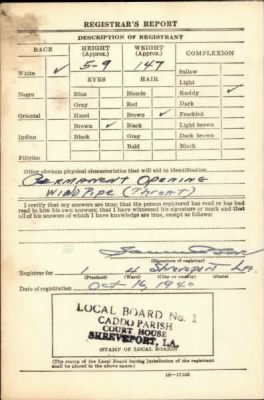 REGISTRAR'S REPORT
DESCRIPTION OF REGISTRANT
RACE HEIGHT (Approx.) WEIGHT (Approx.) COMPLEXION
White ✓ 5-9 147 Sallow
EYES HAIR Light
Negro Blue Blonde Ruddy ✓
Gray Red Dark
Oriental Hazel Brown ✓ Freckled
Brown ✓ Black Light brown
Indian Black Gray Dark brown
Bald Black
Filipino
Other obvious physical characteristics that will aid in identification
PERMANENT OPENING
WINDPIPE (THROAT)
I certify that my answers are true; that the person registered has read or has
had read to him his own answers; that I have witnessed his signature or mark and that
all of his answers of which I have knowledge are true, except as follows:
(Signature of registrar)
Registrar for 1 4 SHREVEPORT LA.
(Precinct) (Ward) (City or county) (State)
Date of registration Oct 16, 1940
LOCAL BOARD No. 1
CADDO PARISH
COURT HOUSE
SHREVEPORT, LA.
(STAMP OF LOCAL BOARD)
(The stamp of the Local Board having jurisdiction of the registrant
shall be placed in the above space.)